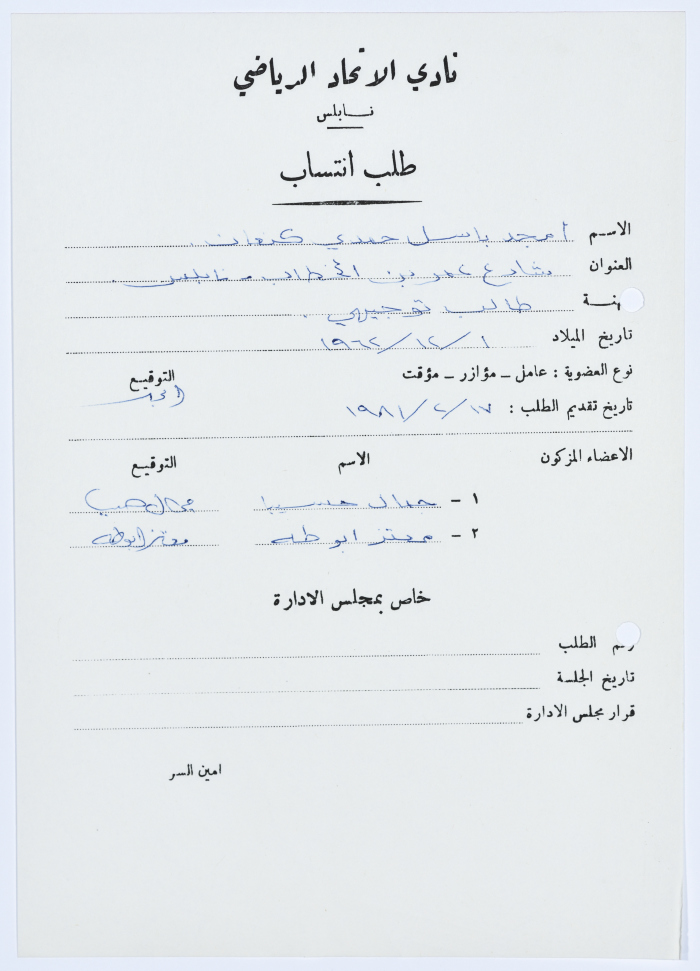 نادي الاتحاد الرياضي
نابلس
طلب انتساب
الاسم أمجد باسل حمدي كنعان.
العنوان شارع عمر بن الخطاب - نابلس.
هنة طالب توجيهي.
تاريخ الميلاد ١/١٢/١٩٦٢
نوع العضوية : عامل - مؤازر - مؤقت التوقيع
تاريخ تقديم الطلب : ١٧/٢/١٩٨١ امجد
الاعضاء المزكون الاسم التوقيع
١ - جمال
٢ - معتز ابو طه معتز ابو طه
خاص بمجلس الادارة
رقم الطلب
تاريخ الجلسة
قرار مجلس الادارة
امين السر